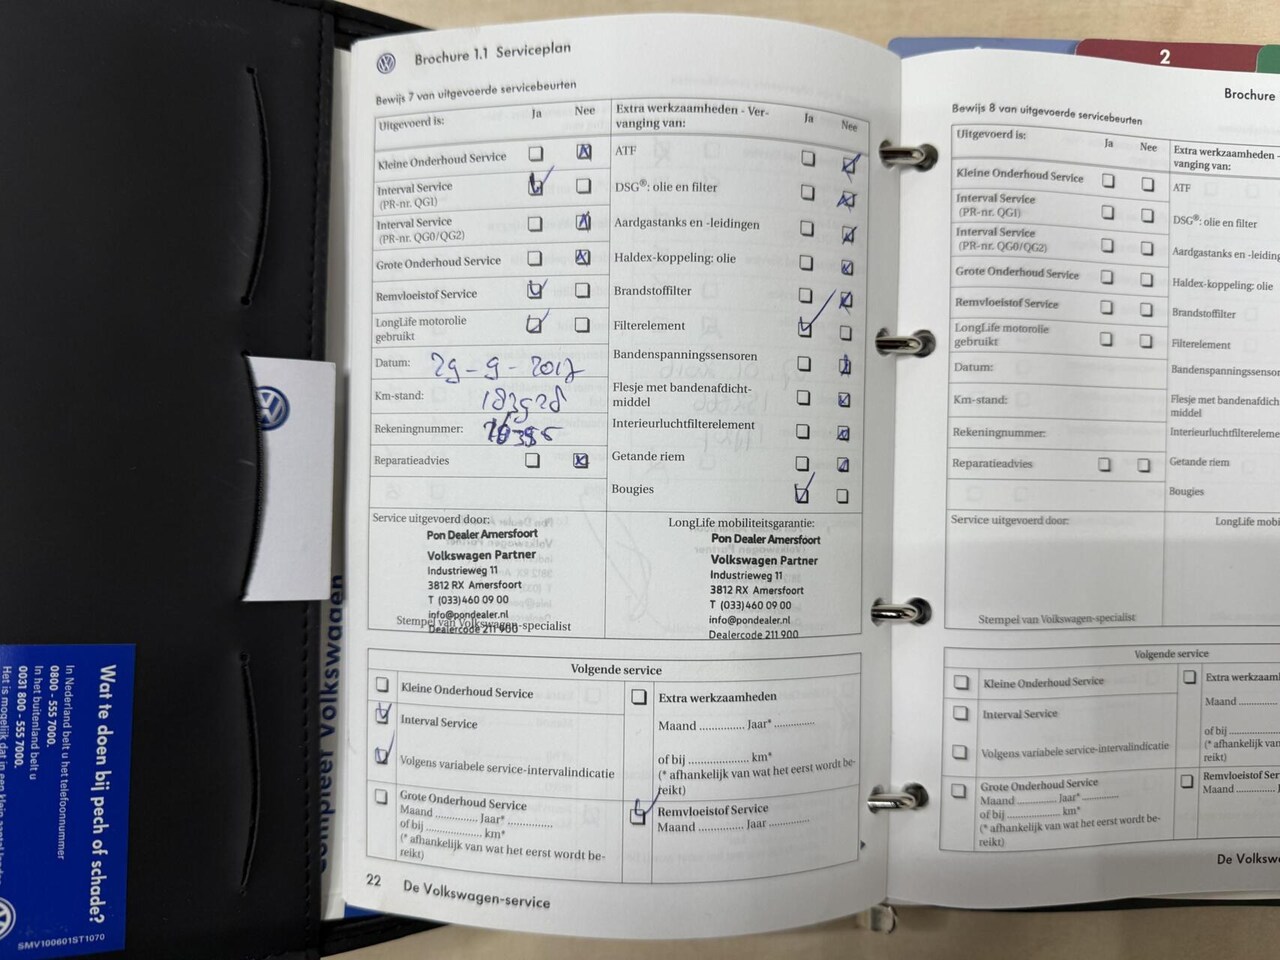 Brochure 1.1 Serviceplan
Bewijs 7 van uitgevoerde servicebeurten
Uitgevoerd is: Ja Nee
Kleine Onderhoud Service
Interval Service
(PR-nr. QG1)
Interval Service
(PR-nr. QG0/QG2)
Grote Onderhoud Service
Remvloeistof Service
LongLife motorolie
gebruikt
Datum: 29-9-2017
Km-stand: 183928
Rekeningnummer:
Reparatieadvies
Extra werkzaamheden - Ver-
vanging van: Ja Nee
ATF
DSG®: olie en filter
Aardgastanks en -leidingen
Haldex-koppeling: olie
Brandstoffilter
Filterelement
Bandenspanningssensoren
Flesje met bandenafdicht-
middel
Interieurluchtfilterelement
Getande riem
Bougies
Service uitgevoerd door:
Pon Dealer Amersfoort
Volkswagen Partner
Industrieweg 11
3812 RX Amersfoort
T (033)460 09 00
info@pondealer.nl
Dealercode 211 900
Stempel van Volkswagen-specialist
LongLife mobiliteitsgarantie:
Pon Dealer Amersfoort
Volkswagen Partner
Industrieweg 11
3812 RX Amersfoort
T (033)460 09 00
info@pondealer.nl
Dealercode 211 900
Volgende service
Kleine Onderhoud Service
Interval Service
Volgens variabele service-intervalindicatie
Grote Onderhoud Service
Maand ............ Jaar* ...............
of bij ...................... km*
(* afhankelijk van wat het eerst wordt be-
reikt)
Extra werkzaamheden
Maand ............ Jaar* .............
of bij ...................... km*
(* afhankelijk van wat het eerst wordt be-
reikt)
Remvloeistof Service
Maand ............ Jaar .............
22 De Volkswagen-service
2
Brochure
Bewijs 8 van uitgevoerde servicebeurten
Uitgevoerd is: Ja Nee
Kleine Onderhoud Service
Interval Service
(PR-nr. QG1)
Interval Service
(PR-nr. QG0/QG2)
Grote Onderhoud Service
Remvloeistof Service
LongLife motorolie
gebruikt
Datum:
Km-stand:
Rekeningnummer:
Reparatieadvies
Extra werkzaamheden -
vanging van:
ATF
DSG®: olie en filter
Aardgastanks en -leiding
Haldex-koppeling: olie
Brandstoffilter
Filterelement
Bandenspanningssensor
Flesje met bandenafdich
middel
Interieurluchtfilterelement
Getande riem
Bougies
Service uitgevoerd door:
LongLife mobil
Stempel van Volkswagen-specialist
Volgende service
Kleine Onderhoud Service
Interval Service
Volgens variabele service-intervalindicatie
Grote Onderhoud Service
Maand ............ Jaar* ...........
of bij ................ km*
(* afhankelijk van wat het eerst wordt be-
reikt)
Extra werkzaam
Maand ............
of bij ............
(* afhankelijk van
reikt)
Remvloeistof Service
Maand ............
De Volksw
Compleet Volkswagen
Wat te doen bij pech of schade?
In Nederland belt u het telefoonnummer
0800 - 555 7000.
In het buitenland belt u
0031 800 - 555 7000.
SMV100601ST1070